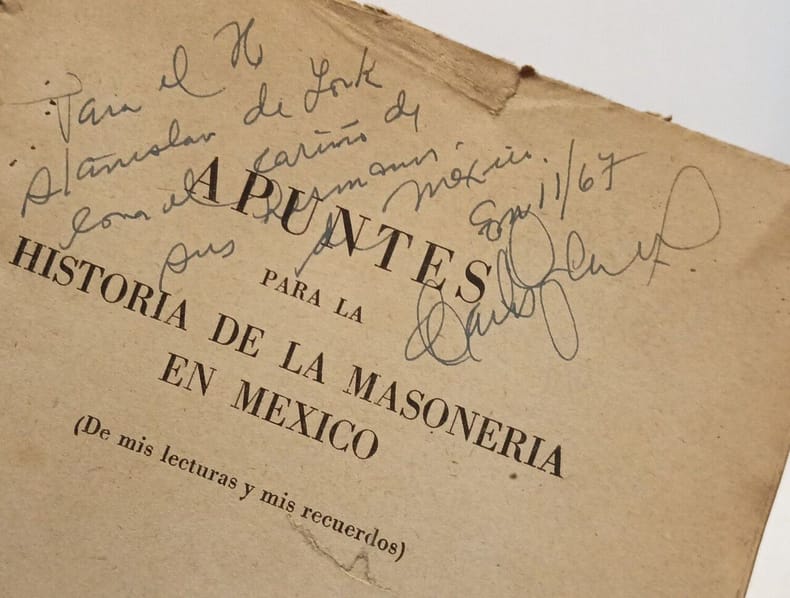 Para el H∴
Stanislav de York
con el cariño de
sus hermanos
de México.
En 11/67
APUNTES
PARA LA
HISTORIA DE LA MASONERIA
EN MEXICO
(De mis lecturas y mis recuerdos)